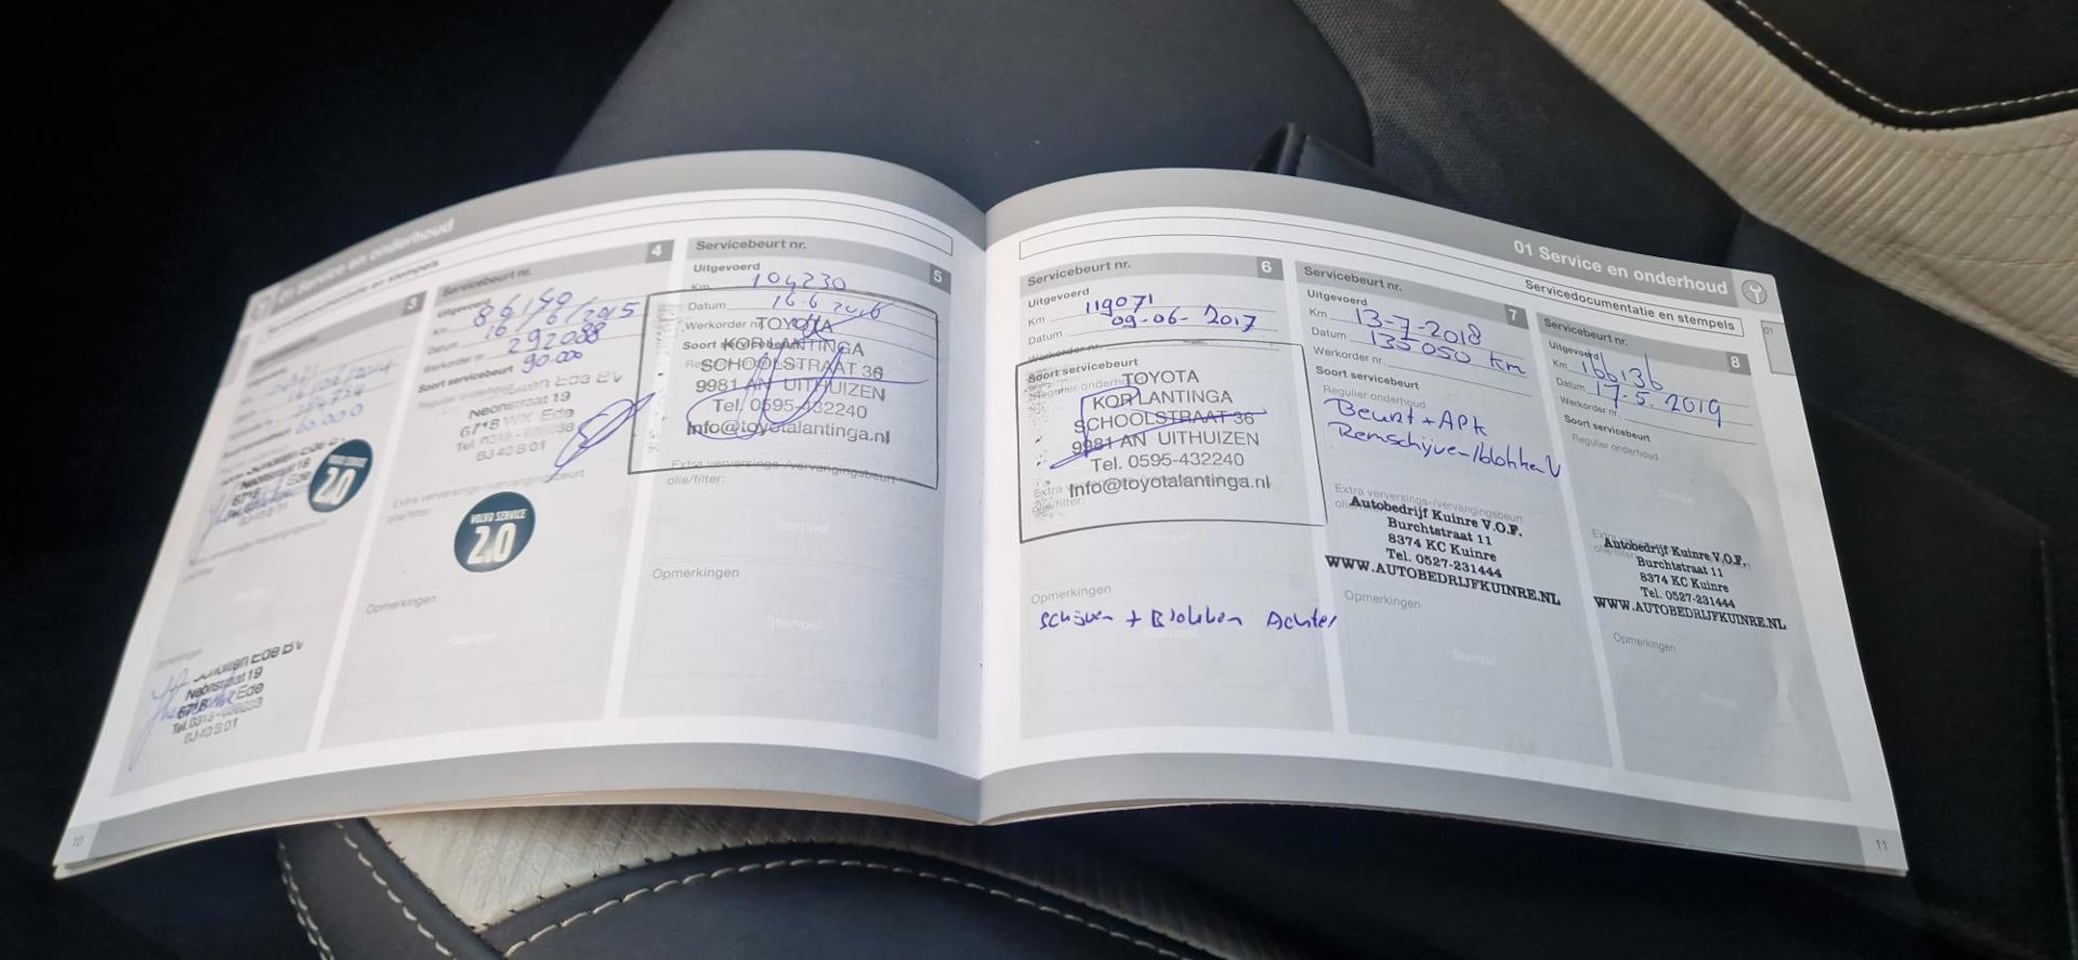 01 Service en onderhoud
Servicedocumentatie en stempels
3
60.000
Neonstraat 19
Ede
VOLVO SERVICE
2.0
Opmerkingen
Neonstraat 19
6718 Ede
BJ 40 B 01
10
Servicebeurt nr.
4
Uitgevoerd
Km 86140
Datum 16/6/2015
Werkorder nr. 292088
Soort servicebeurt 90.000
Regulier onderhoud
Ede BV
Neonstraat 19
6718 WX Ede
BJ 40 B 01
Extra verversings-/vervangingsbeurt
olie/filter:
VOLVO SERVICE
2.0
Opmerkingen
Stempel
Servicebeurt nr.
5
Uitgevoerd
Km 104230
Datum 16-6-2016
Werkorder nr.
TOYOTA
Soort servicebeurt
KOR LANTINGA
SCHOOLSTRAAT 36
9981 AN UITHUIZEN
Tel. 0595-432240
Info@toyotalantinga.nl
Extra verversings-/vervangingsbeurt
olie/filter:
Stempel
Opmerkingen
Stempel
01 Service en onderhoud
Servicedocumentatie en stempels
01
Servicebeurt nr.
6
Uitgevoerd
Km 119071
Datum 09-06-2017
Werkorder nr.
Soort servicebeurt
Regulier onderhoud
TOYOTA
KOR LANTINGA
SCHOOLSTRAAT 36
9981 AN UITHUIZEN
Tel. 0595-432240
Info@toyotalantinga.nl
Extra
olie/filter:
Stempel
Opmerkingen
Schijven + Blokken Achter
Stempel
Servicebeurt nr.
7
Uitgevoerd
Km 13-7-2018
Datum 135050 km
Werkorder nr.
Soort servicebeurt
Regulier onderhoud
Beurt + APK
Remschijven/blokken V
Extra verversings-/vervangingsbeurt
Autobedrijf Kuinre V.O.F.
Burchtstraat 11
8374 KC Kuinre
Tel. 0527-231444
WWW.AUTOBEDRIJFKUINRE.NL
Opmerkingen
Stempel
Servicebeurt nr.
8
Uitgevoerd
Km 166136
Datum 17-5-2019
Werkorder nr.
Soort servicebeurt
Regulier onderhoud
Stempel
Autobedrijf Kuinre V.O.F.
Burchtstraat 11
8374 KC Kuinre
Tel. 0527-231444
WWW.AUTOBEDRIJFKUINRE.NL
Opmerkingen
Stempel
11